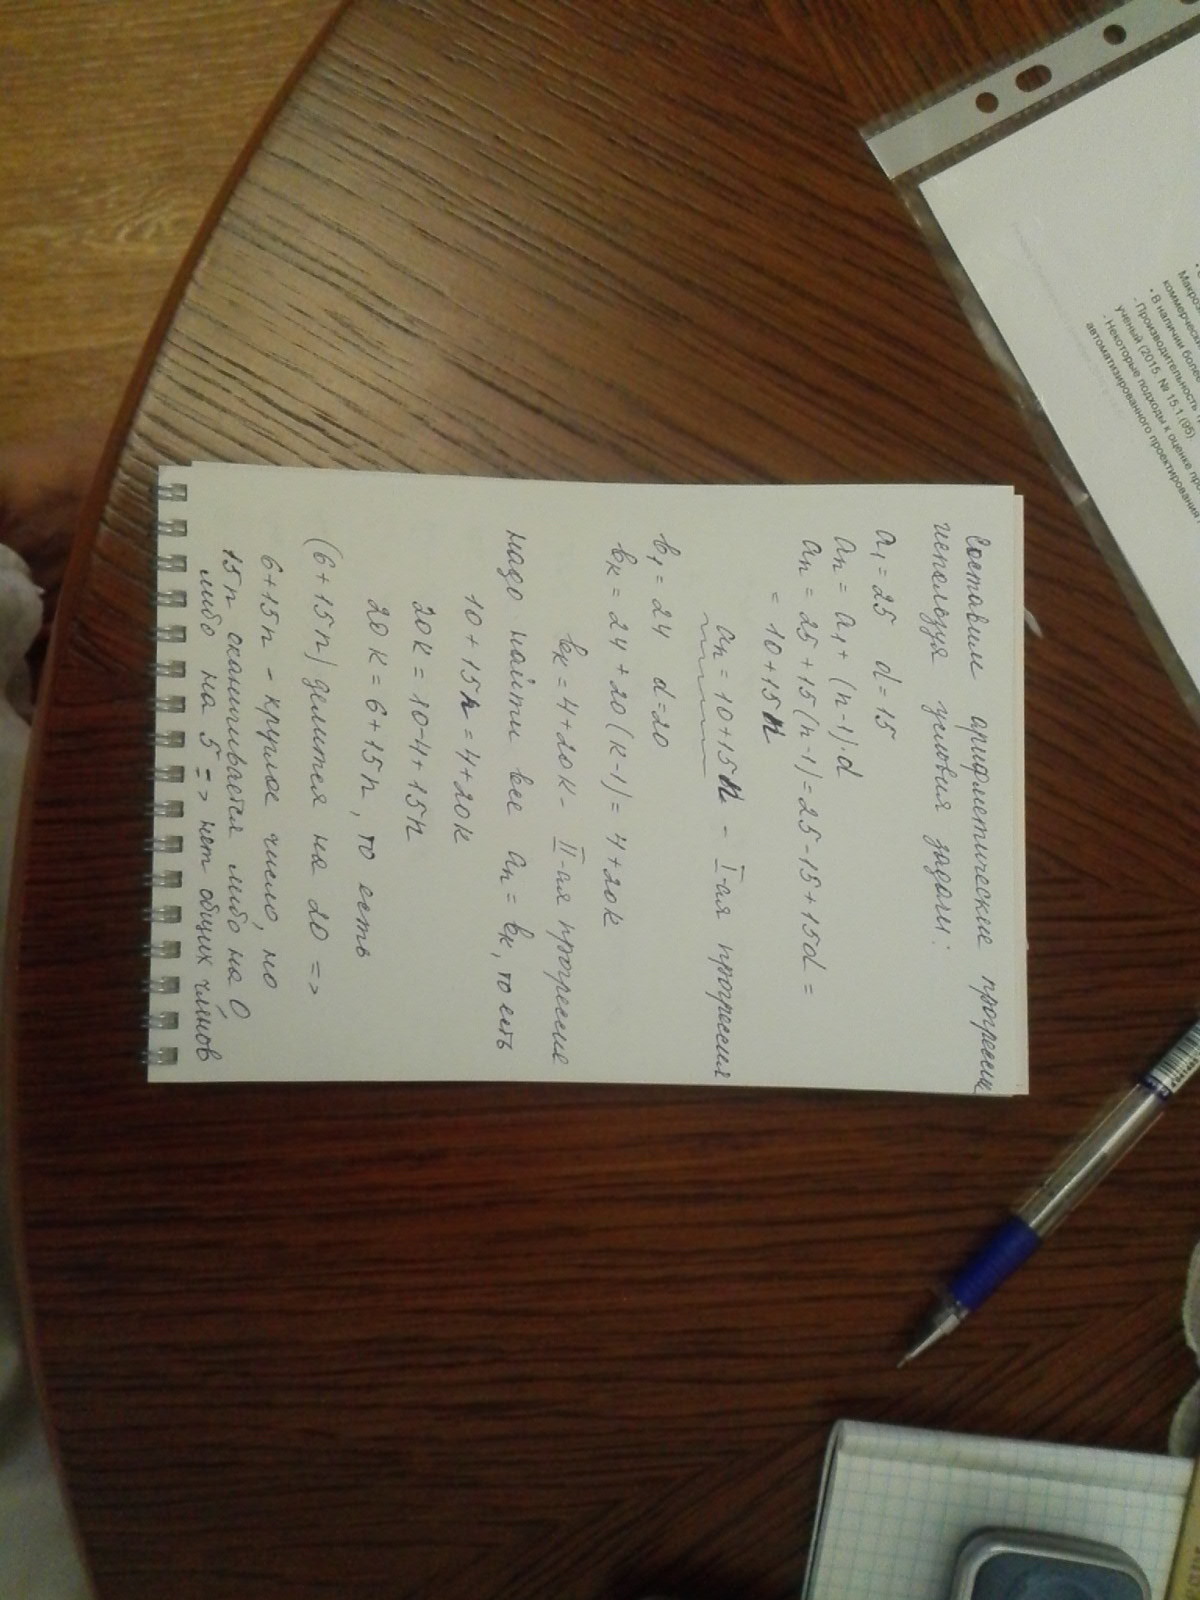 Составим арифметические прогрессии
используя условия задачи:
a₁ = 25 d = 15
aₙ = a₁ + (n-1)·d
aₙ = 25 + 15(n-1) = 25 - 15 + 15d =
= 10 + 15n
aₙ = 10 + 15n - I-ая прогрессия
b₁ = 24 d = 20
bₖ = 24 + 20(k-1) = 4 + 20k
bₖ = 4 + 20k - II-ая прогрессия
надо найти все aₙ = bₖ, то есть
10 + 15n = 4 + 20k
20k = 10-4 + 15n
20k = 6 + 15n, то есть
(6 + 15n) делится на 20 =>
6 + 15n - круглое число, но
15n оканчивается либо на 0
либо на 5 => нет общих членов
Макроэ
коммерческих
• В наличии более
- Производительность
ученый (2015. № 15.1.(95)
- Некоторые подходы к оценке
автоматизированного проектирования